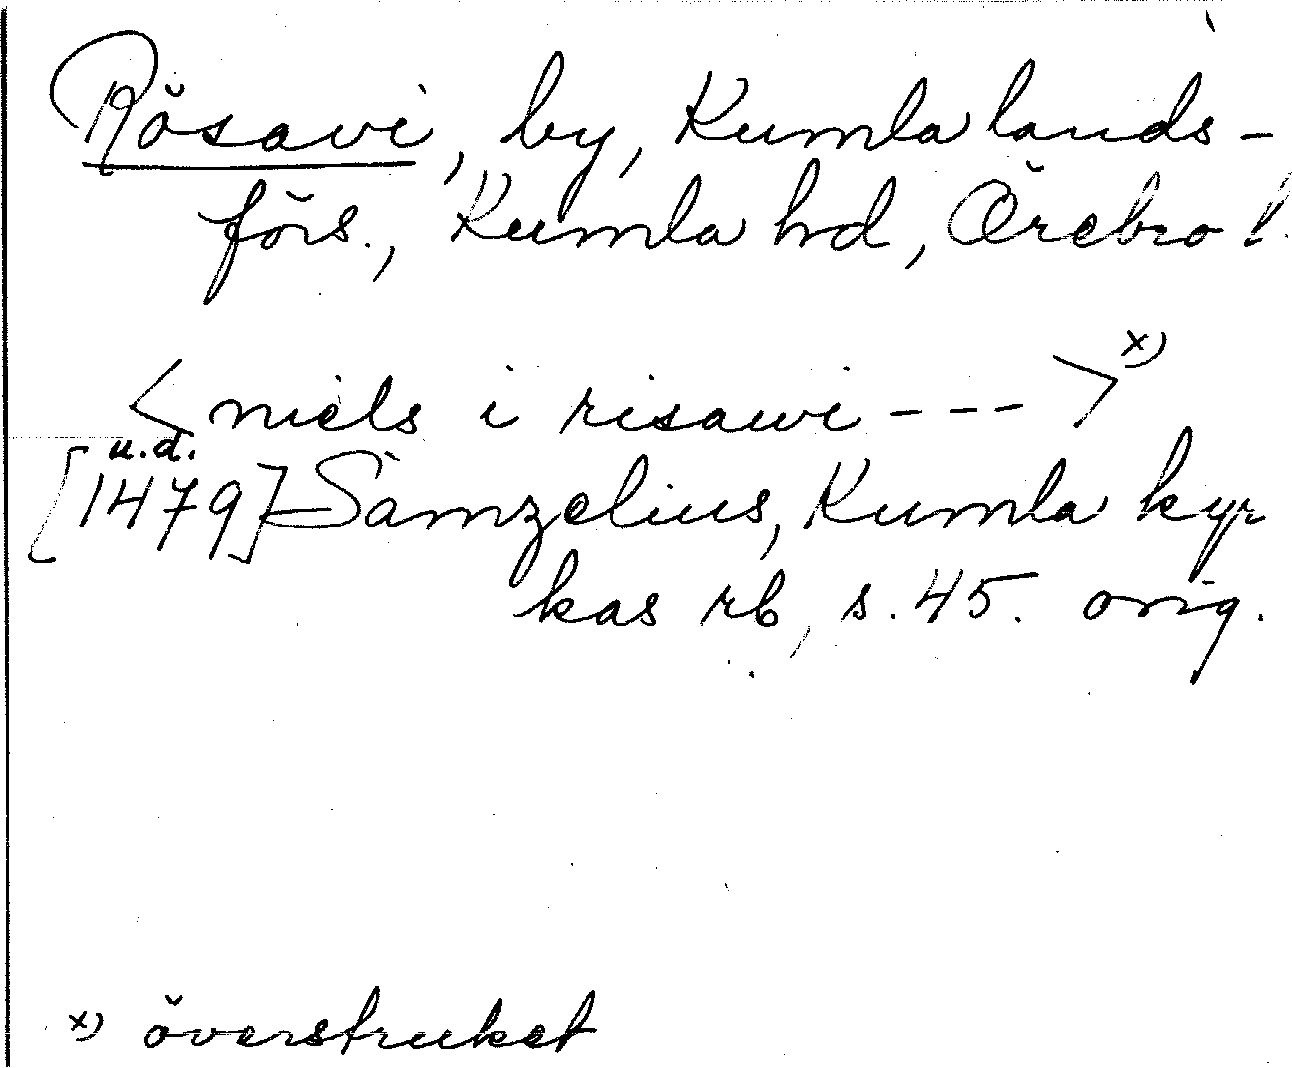 Rösavi, by, Kumla lands-
förs., Kumla hd, Örebro l.
<niels i risawi--->x)
u.d.
[1479] Samzelius, Kumla kyr
kas rb, s. 45. orig.
x) överstruket